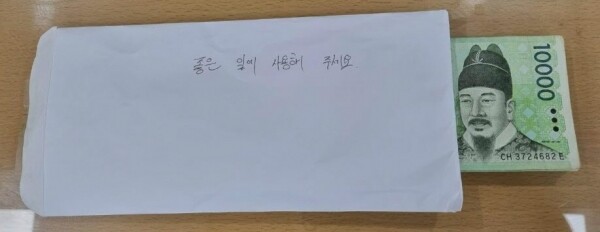 좋은 일에 사용해 주세요
10000
CH 3724682 E